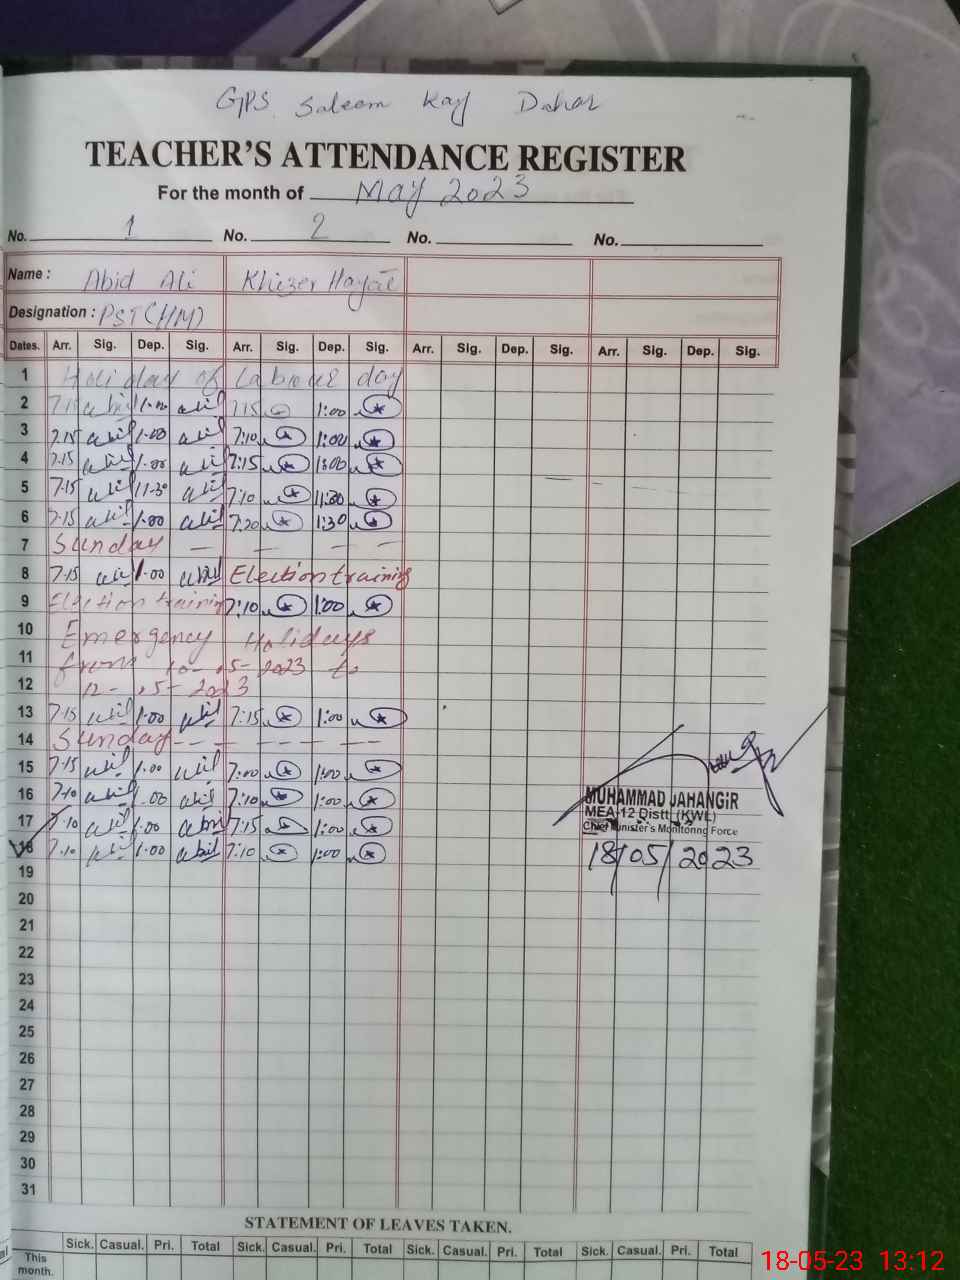 GPS Saleem Kay Dahar
TEACHER'S ATTENDANCE REGISTER
For the month of May 2023
No. 1 No. 2 No. No.
Name : Abid Ali Khizer Hayat
Designation : PST (HM)
Dates. Arr. Sig. Dep. Sig. Arr. Sig. Dep. Sig. Arr. Sig. Dep. Sig. Arr. Sig. Dep. Sig.
1 Holiday of Labour day
2 7.15 1.00 7:15 1:00
3 7.15 1.00 7:10 1:00
4 7.15 1.00 7:15 1:00
5 7.15 11-30 7:10 11:30
6 7.15 1.00 7:20 1:30
7 Sunday — — — —
8 7.15 1.00 Election training
9 Election training 7:10 1:00
10 Emergency Holidays
11 from 10-05-2023 to
12 12-05-2023
13 7.15 1.00 7:15 1:00
14 Sunday — — — — — —
15 7.15 1.00 7:00 1:00
16 7.10 1.00 7:10 1:00
17 7.10 1.00 7:15 1:00
18 7.10 1.00 7:10 1:00
MUHAMMAD JAHANGIR
MEA-12 Distt (KWL)
Chief Minister's Monitoring Force
18/05/2023
19
20
21
22
23
24
25
26
27
28
29
30
31
STATEMENT OF LEAVES TAKEN.
Sick. Casual. Pri. Total Sick. Casual. Pri. Total Sick. Casual. Pri. Total Sick. Casual. Pri. Total
This
month.
18-05-23 13:12